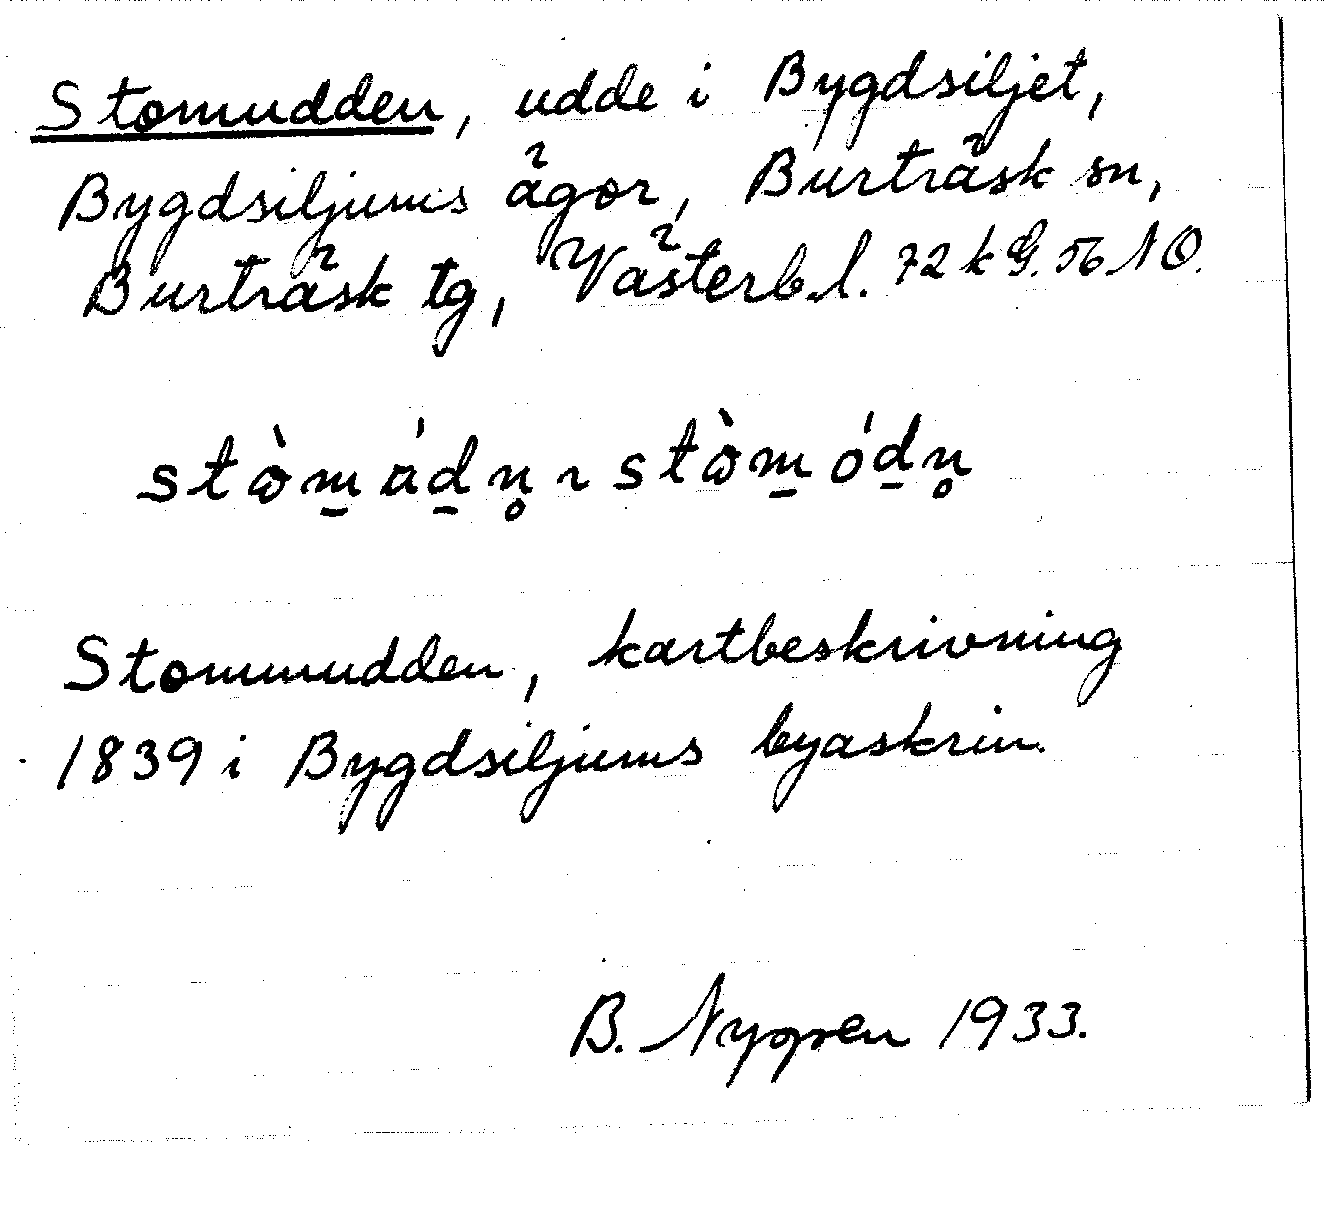 Stomudden, udde i Bygdsiljet,
Bygdsiljums ägor, Burträsk sn,
Burträsk tg, Västerb.l. 72 k G. 56 N O.
stò̀m̲ ád̲n̥ ~ stò̀m̲ ód̲n̥
Stommudden, kartbeskrivning
1839 i Bygdsiljums byaskrin.
B. Nygren 1933.